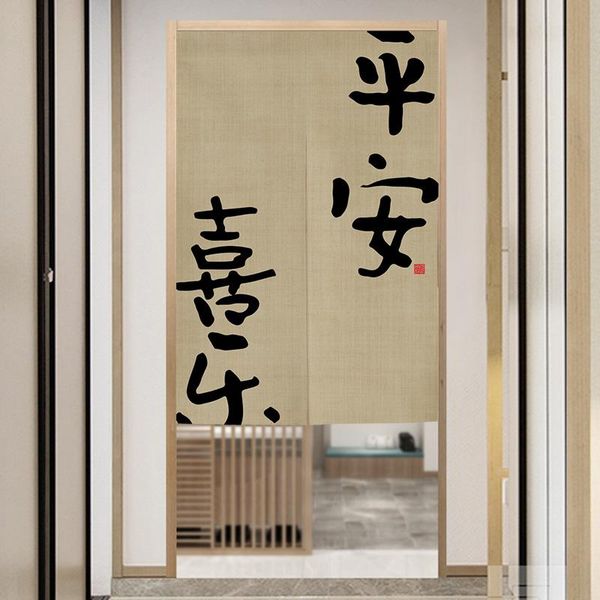 平安
喜乐